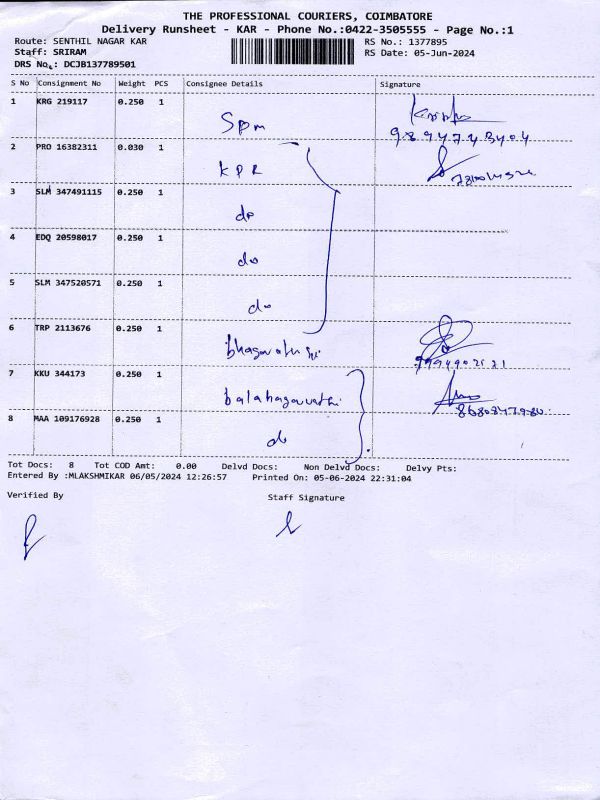 THE PROFESSIONAL COURIERS, COIMBATORE
Delivery Runsheet - KAR - Phone No.:0422-3505555 - Page No.:1
Route: SENTHIL NAGAR KAR
RS No.: 1377895
Staff: SRIRAM
RS Date: 05-Jun-2024
DRS No.: DCJB137789501
S No Consignment No Weight PCS Consignee Details Signature
1 KRG 219117 0.250 1
Spm
9894743404
2 PRO 16382311 0.030 1
KPR
3 SLM 347491115 0.250 1
do
4 EDQ 20598017 0.250 1
do
5 SLM 347520571 0.250 1
do
6 TRP 2113676 0.250 1
7 KKU 344173 0.250 1
8 MAA 109176928 0.250 1
do
Tot Docs: 8 Tot COD Amt: 0.00 Delvd Docs: Non Delvd Docs: Delvy Pts:
Entered By :MLAKSHMIKAR 06/05/2024 12:26:57 Printed On: 05-06-2024 22:31:04
Verified By Staff Signature